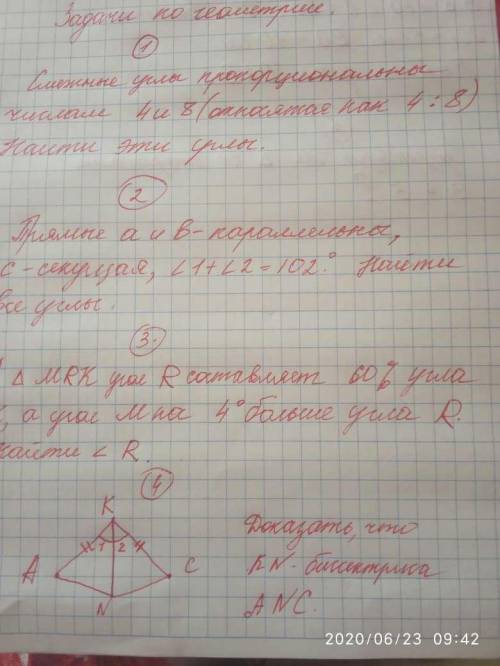 Задачи по геометрии.
1
Смежные углы пропорциональны
числам 4 и 8 (относятся как 4:8)
Найти эти углы.
2
Прямые a и b - параллельны,
c - секущая, ∠1+∠2=102°. Найти
все углы.
3.
△ MRK угол R составляет 60% угла
, а угол M на 4° больше угла R.
Найти ∠R.
4
K
1 2
A
C
N
Доказать, что
KN - биссектриса
ANC.
2020/06/23 09:42